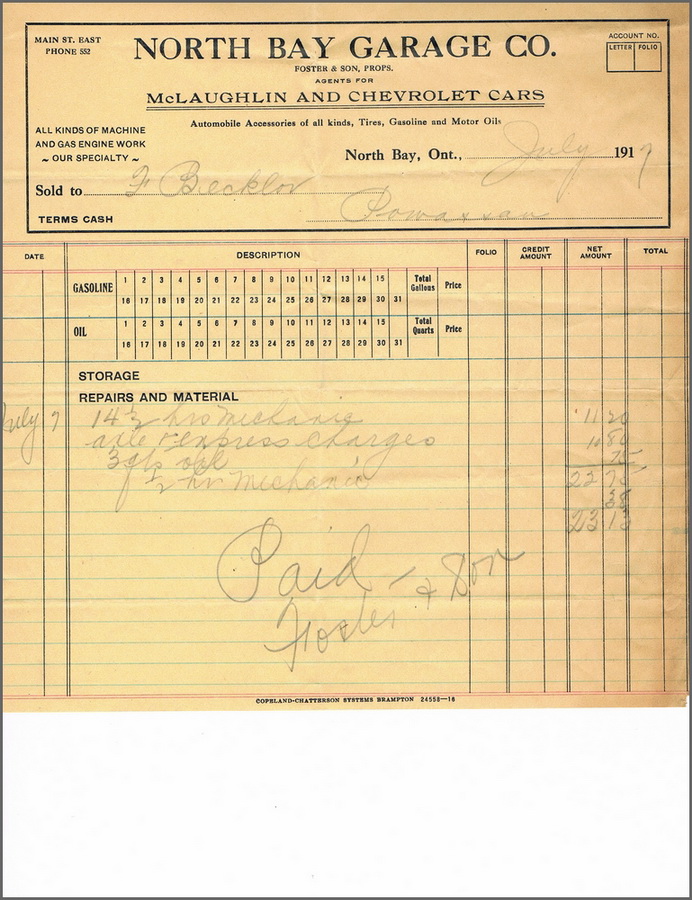 MAIN ST. EAST
PHONE 552
NORTH BAY GARAGE CO.
ACCOUNT NO.
LETTER FOLIO
FOSTER & SON, PROPS.
AGENTS FOR
McLAUGHLIN AND CHEVROLET CARS
Automobile Accessories of all kinds, Tires, Gasoline and Motor Oils
ALL KINDS OF MACHINE
AND GAS ENGINE WORK
~ OUR SPECIALTY ~
North Bay, Ont., July 1917
Sold to F
TERMS CASH
DATE DESCRIPTION FOLIO CREDIT AMOUNT NET AMOUNT TOTAL
GASOLINE 1 2 3 4 5 6 7 8 9 10 11 12 13 14 15 Total Gallons Price
16 17 18 19 20 21 22 23 24 25 26 27 28 29 30 31
OIL 1 2 3 4 5 6 7 8 9 10 11 12 13 14 15 Total Quarts Price
16 17 18 19 20 21 22 23 24 25 26 27 28 29 30 31
STORAGE
REPAIRS AND MATERIAL
July 7 14½ hrs mechanic 11 20
axle & express charges 10 80
3 qts oil 75
½ hr mechanic 22 75
38
23 13
Paid -
Foster & Son
COPELAND-CHATTERSON SYSTEMS BRAMPTON 24558—16